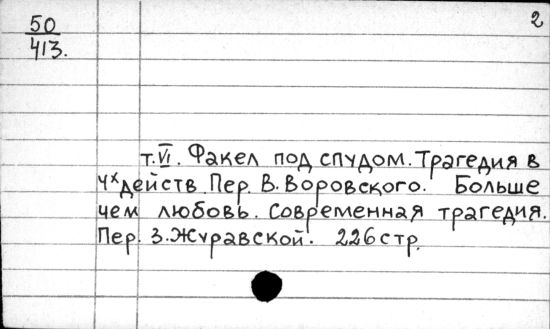 2
50
413.
т. VI. Факел под спудом. Трагедия в
4х действ. Пер. В. Воровского. Больше
чем любовь. Современная трагедия.
Пер. З. Журавской. 226 стр.